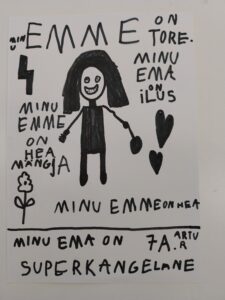 MINU EMME ON TORE.
MINU EMA ON ILUS
MINU EMME ON HEA MÄNGIJA
MINU EMME ON HEA
MINU EMA ON
SUPERKANGELANE
7A. ARTUR